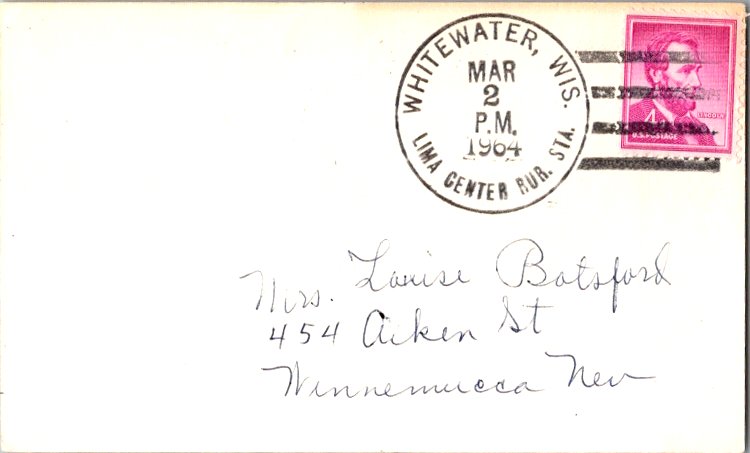 WHITEWATER, WIS.
MAR
2
P.M.
1964
LIMA CENTER RUR. STA.
4¢
LINCOLN
U.S. POSTAGE
Mrs. Louise Botsford
454 Aiken St
Winnemucca Nev